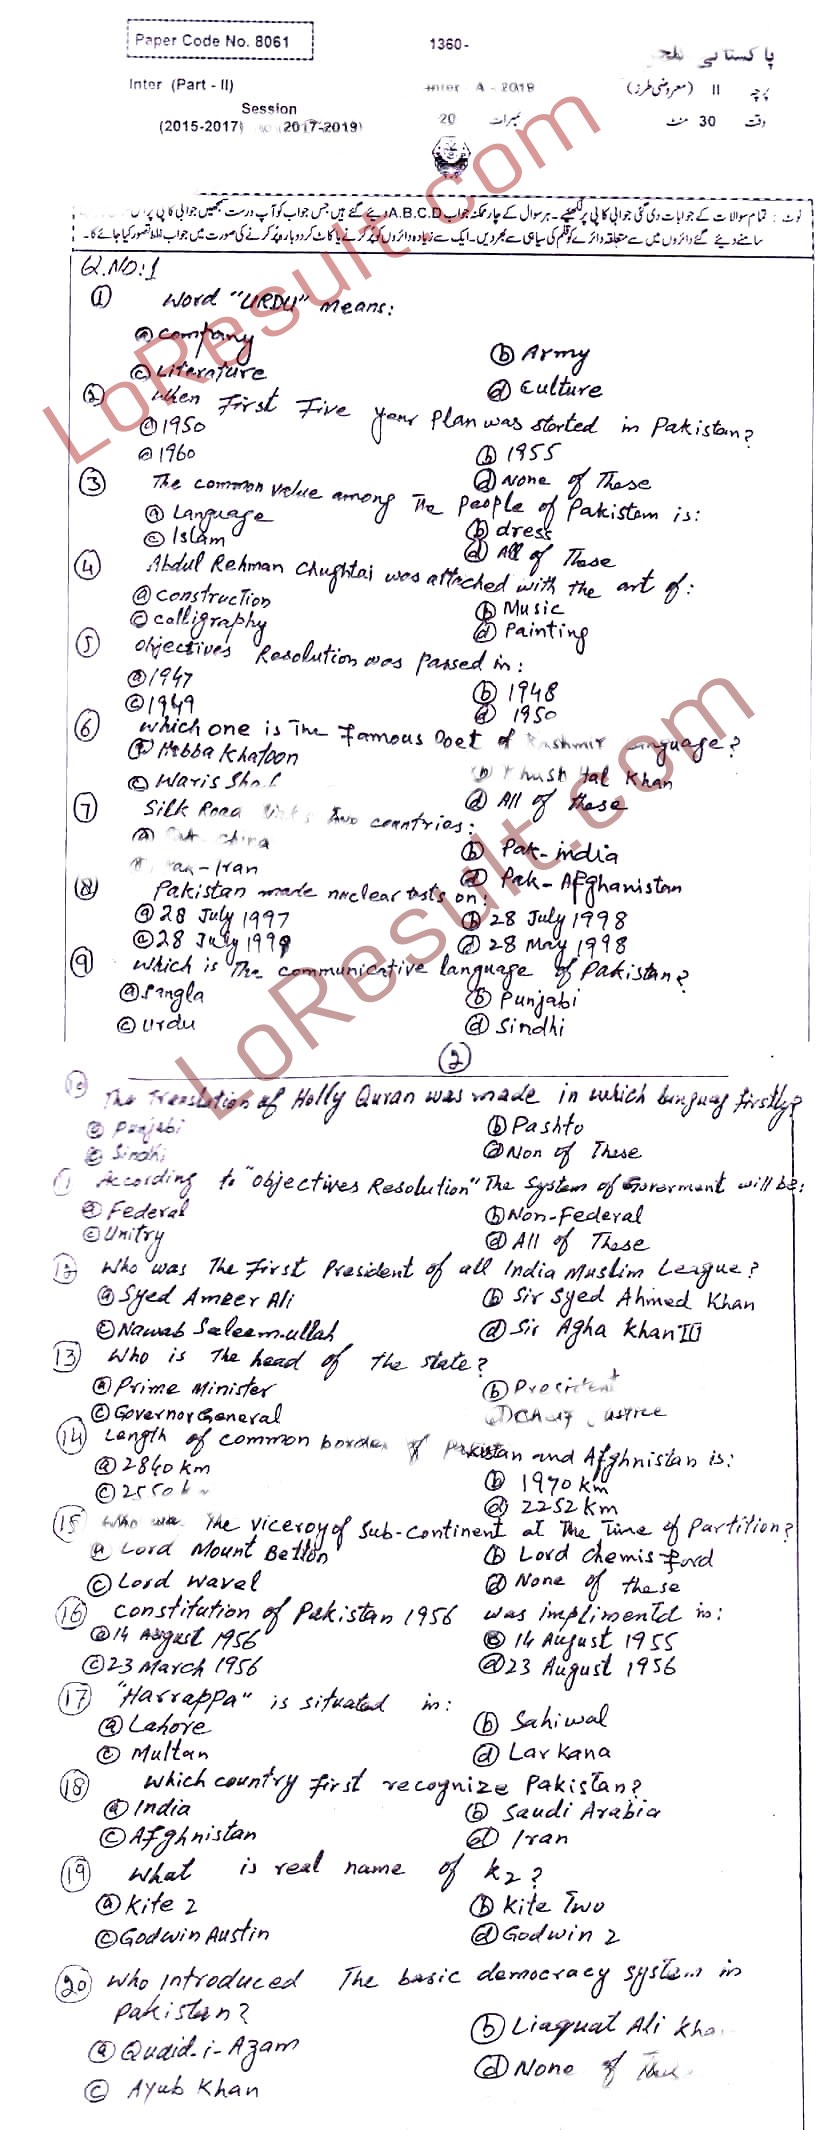 Paper Code No. 8061
1360-
پاکستانی کلچر
Inter (Part - II)
Inter - A - 2019
پرچہ II (معروضی طرز)
Session
(2015-2017) to (2017-2019)
20 نمبرات
وقت 30 منٹ
نوٹ : تمام سوالات کے جوابات دی گئی جوابی کاپی پر لکھیے۔ ہر سوال کے چار ممکنہ جواب A,B,C,D دیے گئے ہیں جس جواب کو آپ درست سمجھیں جوابی کاپی پر اس
سامنے دیئے گئے دائروں میں سے متعلقہ دائرے کو قلم کی سیاہی سے بھر دیں۔ ایک سے زیادہ دائروں کو پر کرنے یا کاٹ کر دوبارہ پر کرنے کی صورت میں جواب غلط تصور کیا جائے گا۔
Q.NO:1
① Word "URDU" means:
ⓐ company
ⓑ Army
ⓒ Literature
ⓓ Culture
② When First Five year Plan was started in Pakistan?
ⓐ 1950
ⓑ 1955
ⓒ 1960
ⓓ None of These
③ The common value among The people of Pakistan is:
ⓐ Language
ⓑ dress
ⓒ Islam
ⓓ All of These
④ Abdul Rehman Chughtai was attached with the art of:
ⓐ construction
ⓑ Music
ⓒ calligraphy
ⓓ Painting
⑤ Objectives Resolution was passed in:
ⓐ 1947
ⓑ 1948
ⓒ 1949
ⓓ 1950
⑥ Which one is The Famous Poet of Kashmir Language?
Habba Khatoon
ⓑ Khush Hal Khan
ⓒ Waris Shah
ⓓ All of these
⑦ Silk Road links two countries:
ⓐ Pak-China
ⓑ Pak-india
Pak-Iran
ⓓ Pak-Afghanistan
⑧ Pakistan made nuclear tests on:
ⓐ 28 July 1997
ⓑ 28 July 1998
ⓒ 28 July 1999
ⓓ 28 May 1998
⑨ Which is The communicative language of Pakistan?
ⓐ Sangla
ⓑ Punjabi
ⓒ Urdu
ⓓ Sindhi
②
⑩ The Translation of Holly Quran was made in which languag firstly?
ⓐ Punjabi
ⓑ Pashto
ⓒ Sindhi
ⓓ Non of These
According to "objectives Resolution" The System of Goverment will be:
ⓐ Federal
ⓑ Non-Federal
ⓒ Unitry
ⓓ All of These
⑫ Who was The First President of all India Muslim League?
ⓐ Syed Ameer Ali
ⓑ Sir Syed Ahmed Khan
ⓒ Nawab Saleem-ullah
ⓓ Sir Agha Khan III
⑬ Who is The head of The state?
ⓐ Prime Minister
ⓑ President
ⓒ Governor General
ⓓ Chief Justice
⑭ Length of common border of Pakistan and Afghnistan is:
ⓐ 2840 km
ⓑ 1970 km
ⓒ 2550 km
ⓓ 2252 km
⑮ Who was The viceroy of Sub-continent at The Time of Partition?
ⓐ Lord Mount Betton
ⓑ Lord Chemis ford
ⓒ Lord Waval
ⓓ None of these
⑯ Constitution of Pakistan 1956 was implimentd in:
ⓐ 14 August 1956
ⓑ 14 August 1955
ⓒ 23 March 1956
ⓓ 23 August 1956
⑰ "Harrappa" is situated in:
ⓐ Lahore
ⓑ Sahiwal
ⓒ Multan
ⓓ Larkana
⑱ Which country First recognize Pakistan?
ⓐ India
ⓑ Saudi Arabia
ⓒ Afghnistan
ⓓ Iran
⑲ What is real name of K2?
ⓐ Kite 2
ⓑ Kite Two
ⓒ Godwin Austin
ⓓ Godwin 2
⑳ Who introduced The basic democracy system in
Pakistan?
ⓐ Quaid-i-Azam
ⓑ Liaquat Ali Khan
ⓒ Ayub Khan
ⓓ None of These
LoResult.com
LoResult.com